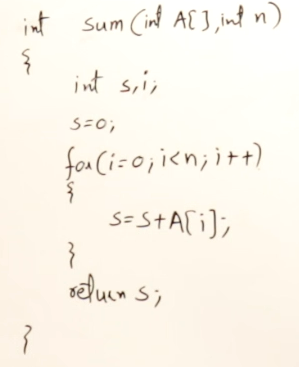 int sum (int A[], int n)
{
int s, i;
s=0;
for(i=0; i<n; i++)
{
s=s+A[i];
}
return s;
}